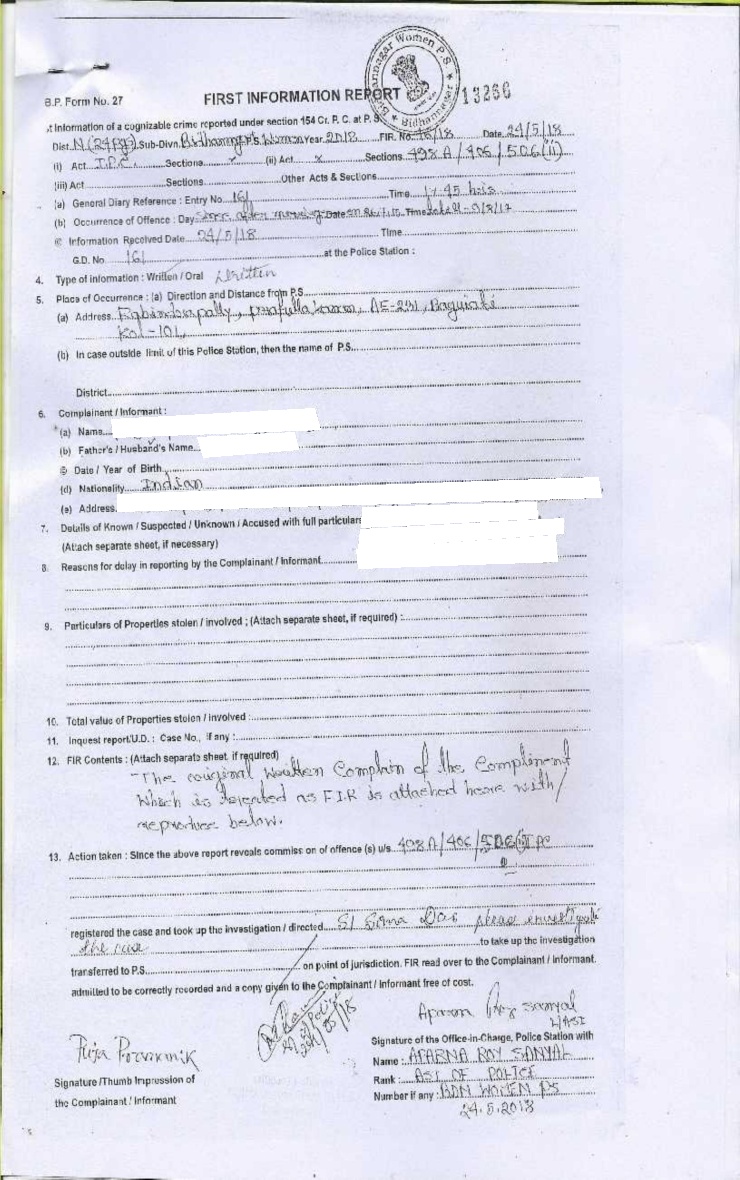 Bidhannagar Women P.S.
Bidhannagar
13266
B.P. Form No. 27
FIRST INFORMATION REPORT
t Information of a cognizable crime reported under section 154 Cr. P. C. at P. S.
Dist. N (24 Pgs) Sub-Divn. Bidhannagar P.S. Women Year 2018 FIR. No. /18 Date 24/5/18
(i) Act I.P.C. Sections (ii) Act x Sections 498A/406/506(ii)
(iii) Act Sections Other Acts & Sections
(a) General Diary Reference : Entry No. 161 Time 17.45 hrs
(b) Occurrence of Offence : Day Since after Date Time
© Information Received Date 24/5/18 Time
G.D. No. 161 at the Police Station :
4. Type of information : Written / Oral Written
5. Place of Occurrence : (a) Direction and Distance from P.S.
(a) Address AE-231, Baguiati
Kol-101,
(b) In case outside limit of this Police Station, then the name of P.S.
District
6. Complainant / Informant :
(a) Name
(b) Father's / Husband's Name
© Date / Year of Birth
(d) Nationality Indian
(e) Address
7. Details of Known / Suspected / Unknown / Accused with full particulars
(Attach separate sheet, if necessary)
8. Reasons for delay in reporting by the Complainant / Informant
9. Particulars of Properties stolen / involved ; (Attach separate sheet, if required) :
10. Total value of Properties stolen / involved :
11. Inquest report/U.D. : Case No., if any :
12. FIR Contents : (Attach separate sheet, if required)
"The original Written Complain of the Compliment
Which is treated as F.I.R is attached here with/
reproduce below.
13. Action taken : Since the above report reveals commission of offence (s) u/s 498A/406/506(ii) IPC
registered the case and took up the investigation / directed SI Soma Das please investigate
the case to take up the investigation
transferred to P.S. on point of jurisdiction. FIR read over to the Complainant / Informant.
admitted to be correctly recorded and a copy given to the Complainant / Informant free of cost.
Aparna Roy Sanyal
L/ASI
Puja Poramanik
Signature /Thumb Impression of
the Complainant / Informant
of Police
24/05/18
Signature of the Office-in-Charge, Police Station with
Name : APARNA ROY SANYAL
Rank : ASI OF POLICE
Number if any : BDN WOMEN PS
24.5.2018